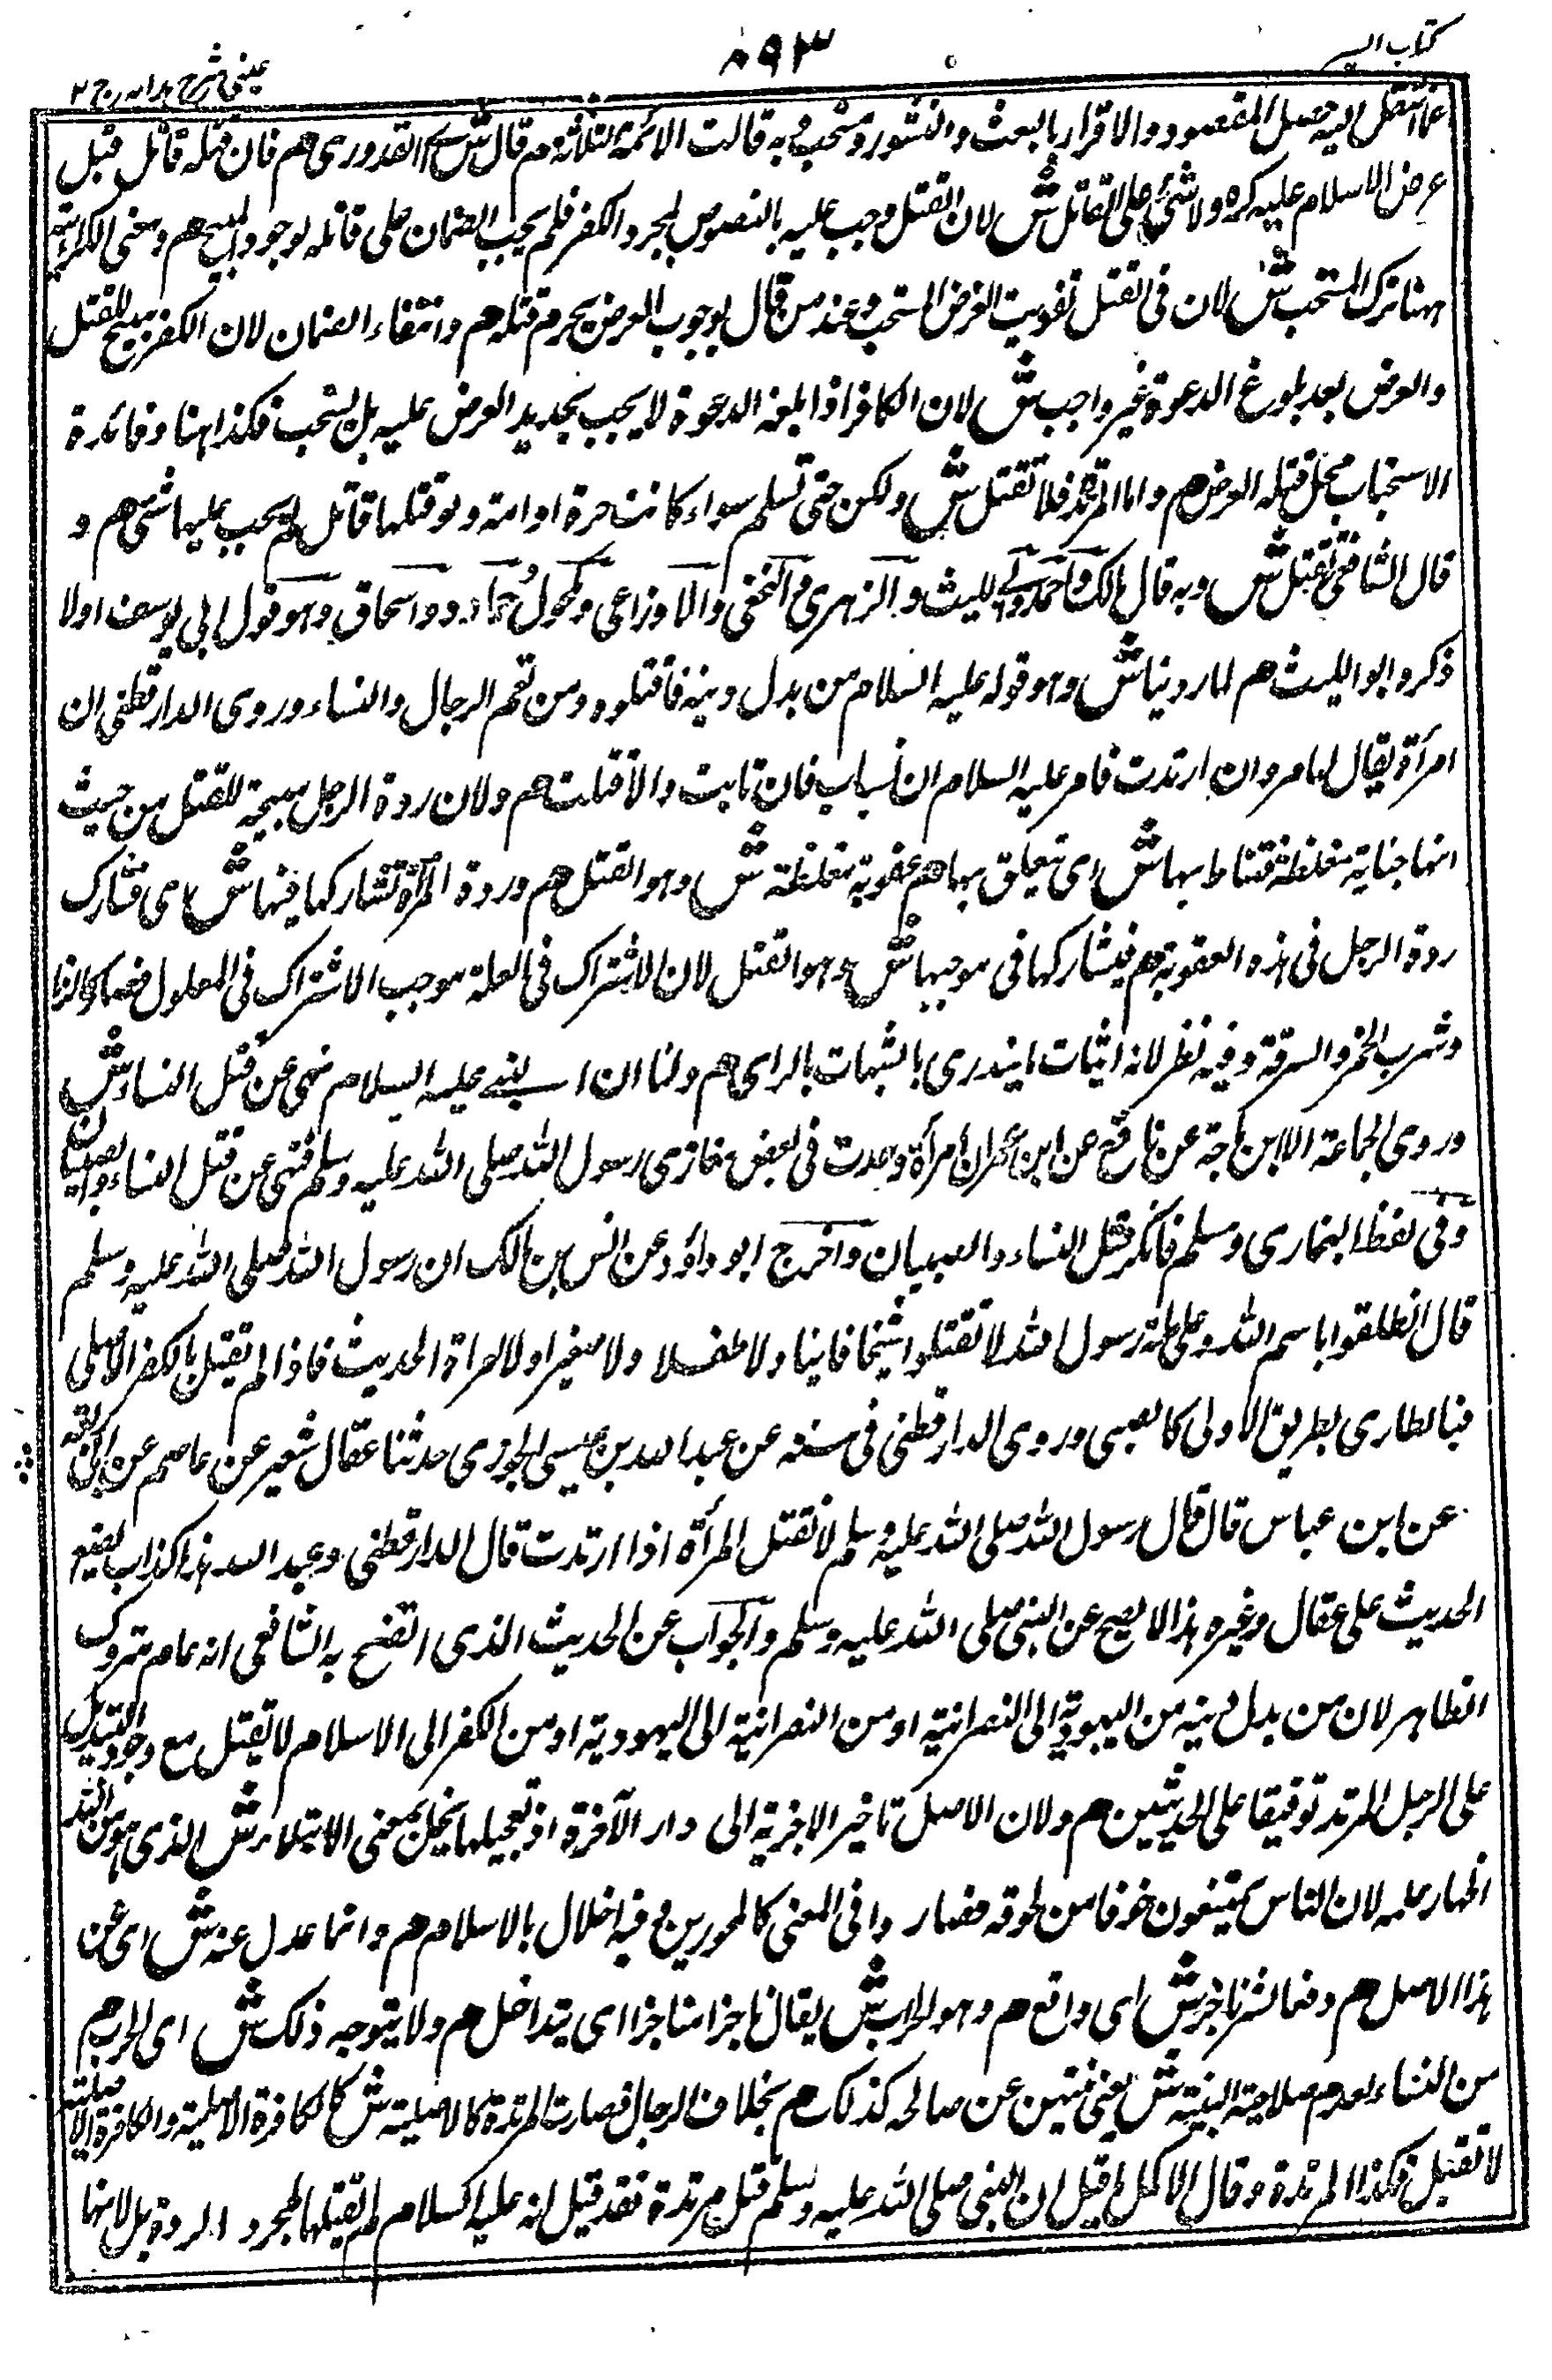 كتاب السير
٨٩٣
عينى شرح هدايه ج ٢
عما انتقل اليه حصل المقصود والاقرار بالبعث والنشور مستحب وبه قالت الائمة الثلاثة هم قال ش اى القدورى هم فان قتله قاتل قبل
عرض الاسلام عليه كره ولا شئ على القاتل ش لان القتل وجب عليه بالنصوص لمجرد الكفر فلم يجب الضمان على قاتله لوجود المبيح هم ومعنى الكراهية
ههنا ترك المستحب ش لان فى القتل تفويت العرض المستحب وعند من قال بوجوب العرض يحرم قتله هم وانتفاء الضمان لان الكفر مبيح للقتل
والعرض بعد بلوغ الدعوة غير واجب ش لان الكافر اذا بلغه الدعوة لا يجب تجديد العرض عليه بل يستحب فكذا ههنا وفائدة
الاستحباب محل قبله العرض هم واما المرتدة فلا تقتل ش ولكن حتى تسلم سواء كانت حرة او امة ولو قتلها قاتل لم يجب عليها شئ هم و
قال الشافعى تقتل ش وبه قال مالك واحمد والليث والزهرى والنخعى والاوزاعى ومكحول وحماد واسحاق وهو قول ابى يوسف اولا
ذكره ابو الليث هم لما روينا ش وهو قوله عليه السلام من بدل دينه فاقتلوه ومن تعم الرجال والنساء وروى الدارقطنى ان
امرأة يقال لها مروان ارتدت فامر عليه السلام ان تستاب فان تابت والا قتلت هم ولان ردة الرجل مبيحة للقتل من حيث
انها جناية مغلظة فتناط بها ش اى تتعلق بها هم عقوبة مغلظة ش وهو القتل هم وردة المرأة تشاركها فيها ش اى تشارك
ردة الرجل فى هذه العقوبة هم فيشاركها فى موجبها ش وهو القتل لان الاشتراك فى العلة موجب الاشتراك فى المعلول فصار كالزنا
وشرب الخمر والسرقة وفيه نظر لانه اثبات ما يندرى بالشبهات بالراى هم ولنا ان النبى عليه السلام نهى عن قتل النساء ش
وروى الجماعة الا ابن ماجة عن نافع عن ابن عمر ان امرأة وجدت فى بعض مغازى رسول الله صلى الله عليه وسلم فنهى عن قتل النساء والصبيان
وفى لفظ البخارى ومسلم فانكر قتل النساء والصبيان واخرج ابو داؤد عن انس بن مالك ان رسول الله صلى الله عليه وسلم
قال انطلقوا باسم الله وعلى ملة رسول الله لا تقتلوا شيخا فانيا ولا طفلا ولا صغيرا ولا امراة الحديث فاذا لم تقتل بالكفر الاصلى
فبالطارى بطريق الاولى كالصبى وروى الدارقطنى فى سننه عن عبد الله بن عيسى الجزرى حدثنا عفان شعبة عن عاصم عن ابى
عن ابن عباس قال قال رسول الله صلى الله عليه وسلم لا تقتل المرأة اذا ارتدت قال الدارقطنى وعبد الله هذا كذاب يضع
الحديث على عفال وغيره هذا لا يصح عن النبى صلى الله عليه وسلم والجواب عن الحديث الذى احتج به الشافعى انه عام متروك
الظاهر لان من بدل دينه من اليهودية الى النصرانية او من النصرانية الى اليهودية او من الكفر الى الاسلام لا يقتل مع وجود التبديل
على الرجل المرتد توفيقا على الحديثين هم ولان الاصل تاخير الاجزية الى دار الآخرة اذ تعجيلها يخل بمعنى الابتلاء ش الذى هو من الله
اظهار علمه لان الناس يمتنعون خوفا من لحوقه فصار وا فى المعنى كالمجبورين وفيه اخلال بالاسلام هم وانما عدل عنه ش اى عن
هذا الاصل هم دفعا لشر ناجز ش اى واقع هم وهو الحراب ش يقال ناجزا بناجزا اى يتداخل هم ولا يتوجه ذلك ش اى الحراب هم
من النساء لعدم صلاحية البنية ش يعنى بنيتهن غير صالحه كذلك هم بخلاف الرجال فصارت المرتدة كالاصلية ش كالكافرة الاصلية والكافرة الاصلية
لا تقتل فكذا المرتدة وقال الاكمل قيل ان النبى صلى الله عليه وسلم قتل مرتدة فقد قيل انه عليه السلام لم يقتلها لمجرد الردة بل لانها